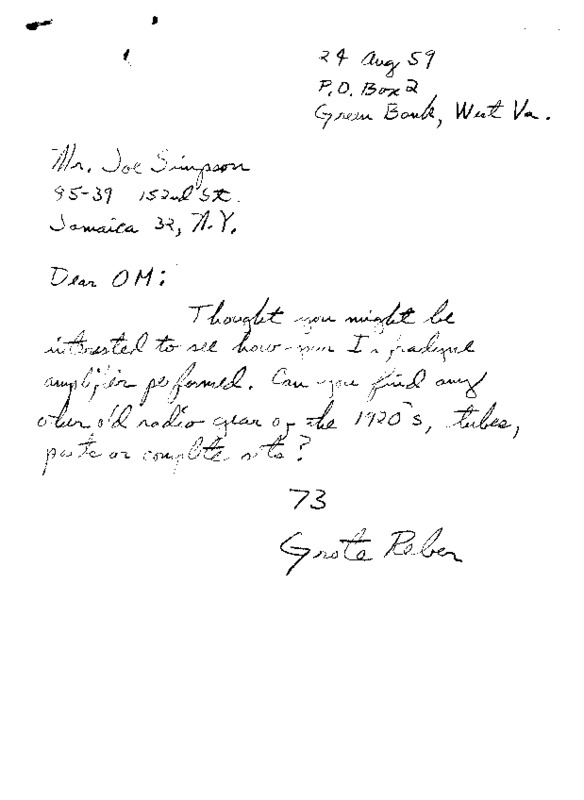 24 Aug 59
P.O. Box 2
Green Bank, West Va.
Mr. Joe Simpson
85-39 152nd St.
Jamaica 32, N.Y.
Dear OM:
Thought you might be
interested to see how your Infradyne
amplifier performed. Can you find any
other old radio gear of the 1920's, tubes,
parts or complete sets?
73
Grote Reber